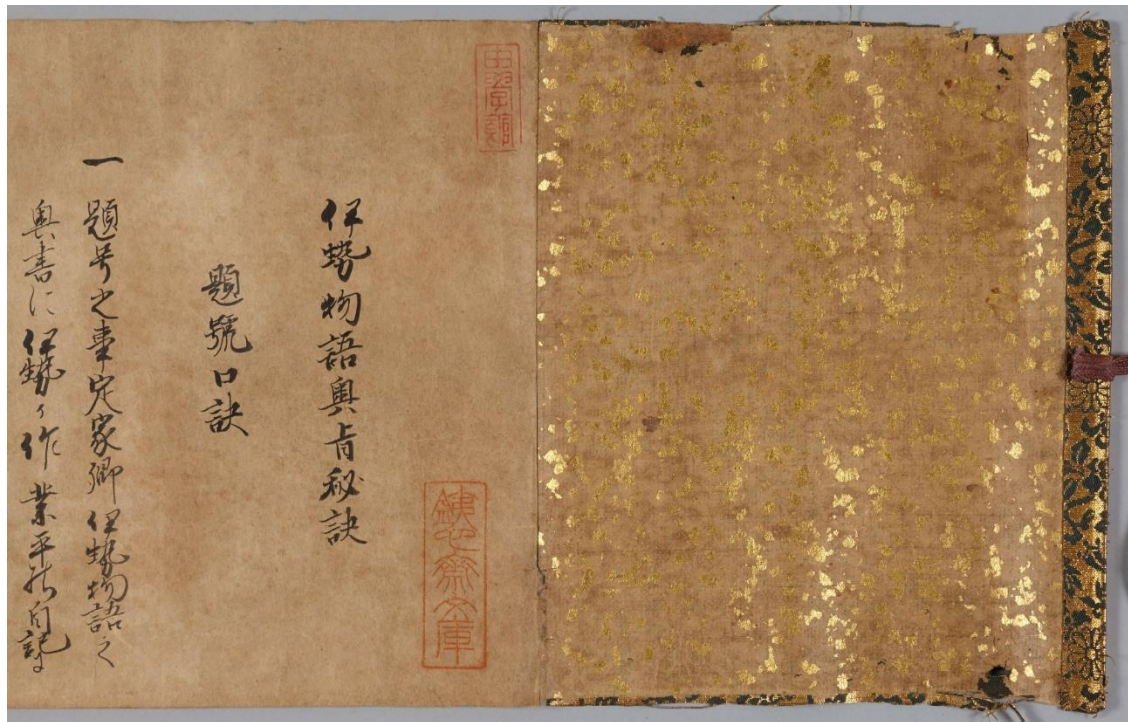 由學館
銕心齋文庫
伊勢物語奥旨秘訣
題號口訣
一 題号之事定家卿伊勢物語之
奥書に伊勢か作業平自記